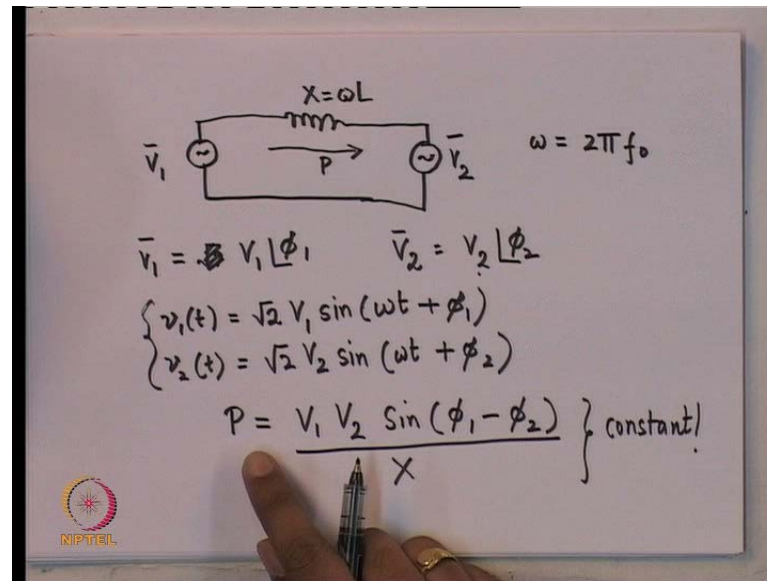 X=ωL
V̄₁ P V̄₂ ω = 2πf₀
V̄₁ = V₁∠ϕ₁ V̄₂ = V₂∠ϕ₂
v₁(t) = √2 V₁ sin (ωt + ϕ₁)
v₂(t) = √2 V₂ sin (ωt + ϕ₂)
P = V₁ V₂ Sin (ϕ₁ - ϕ₂) } constant!
X
NPTEL